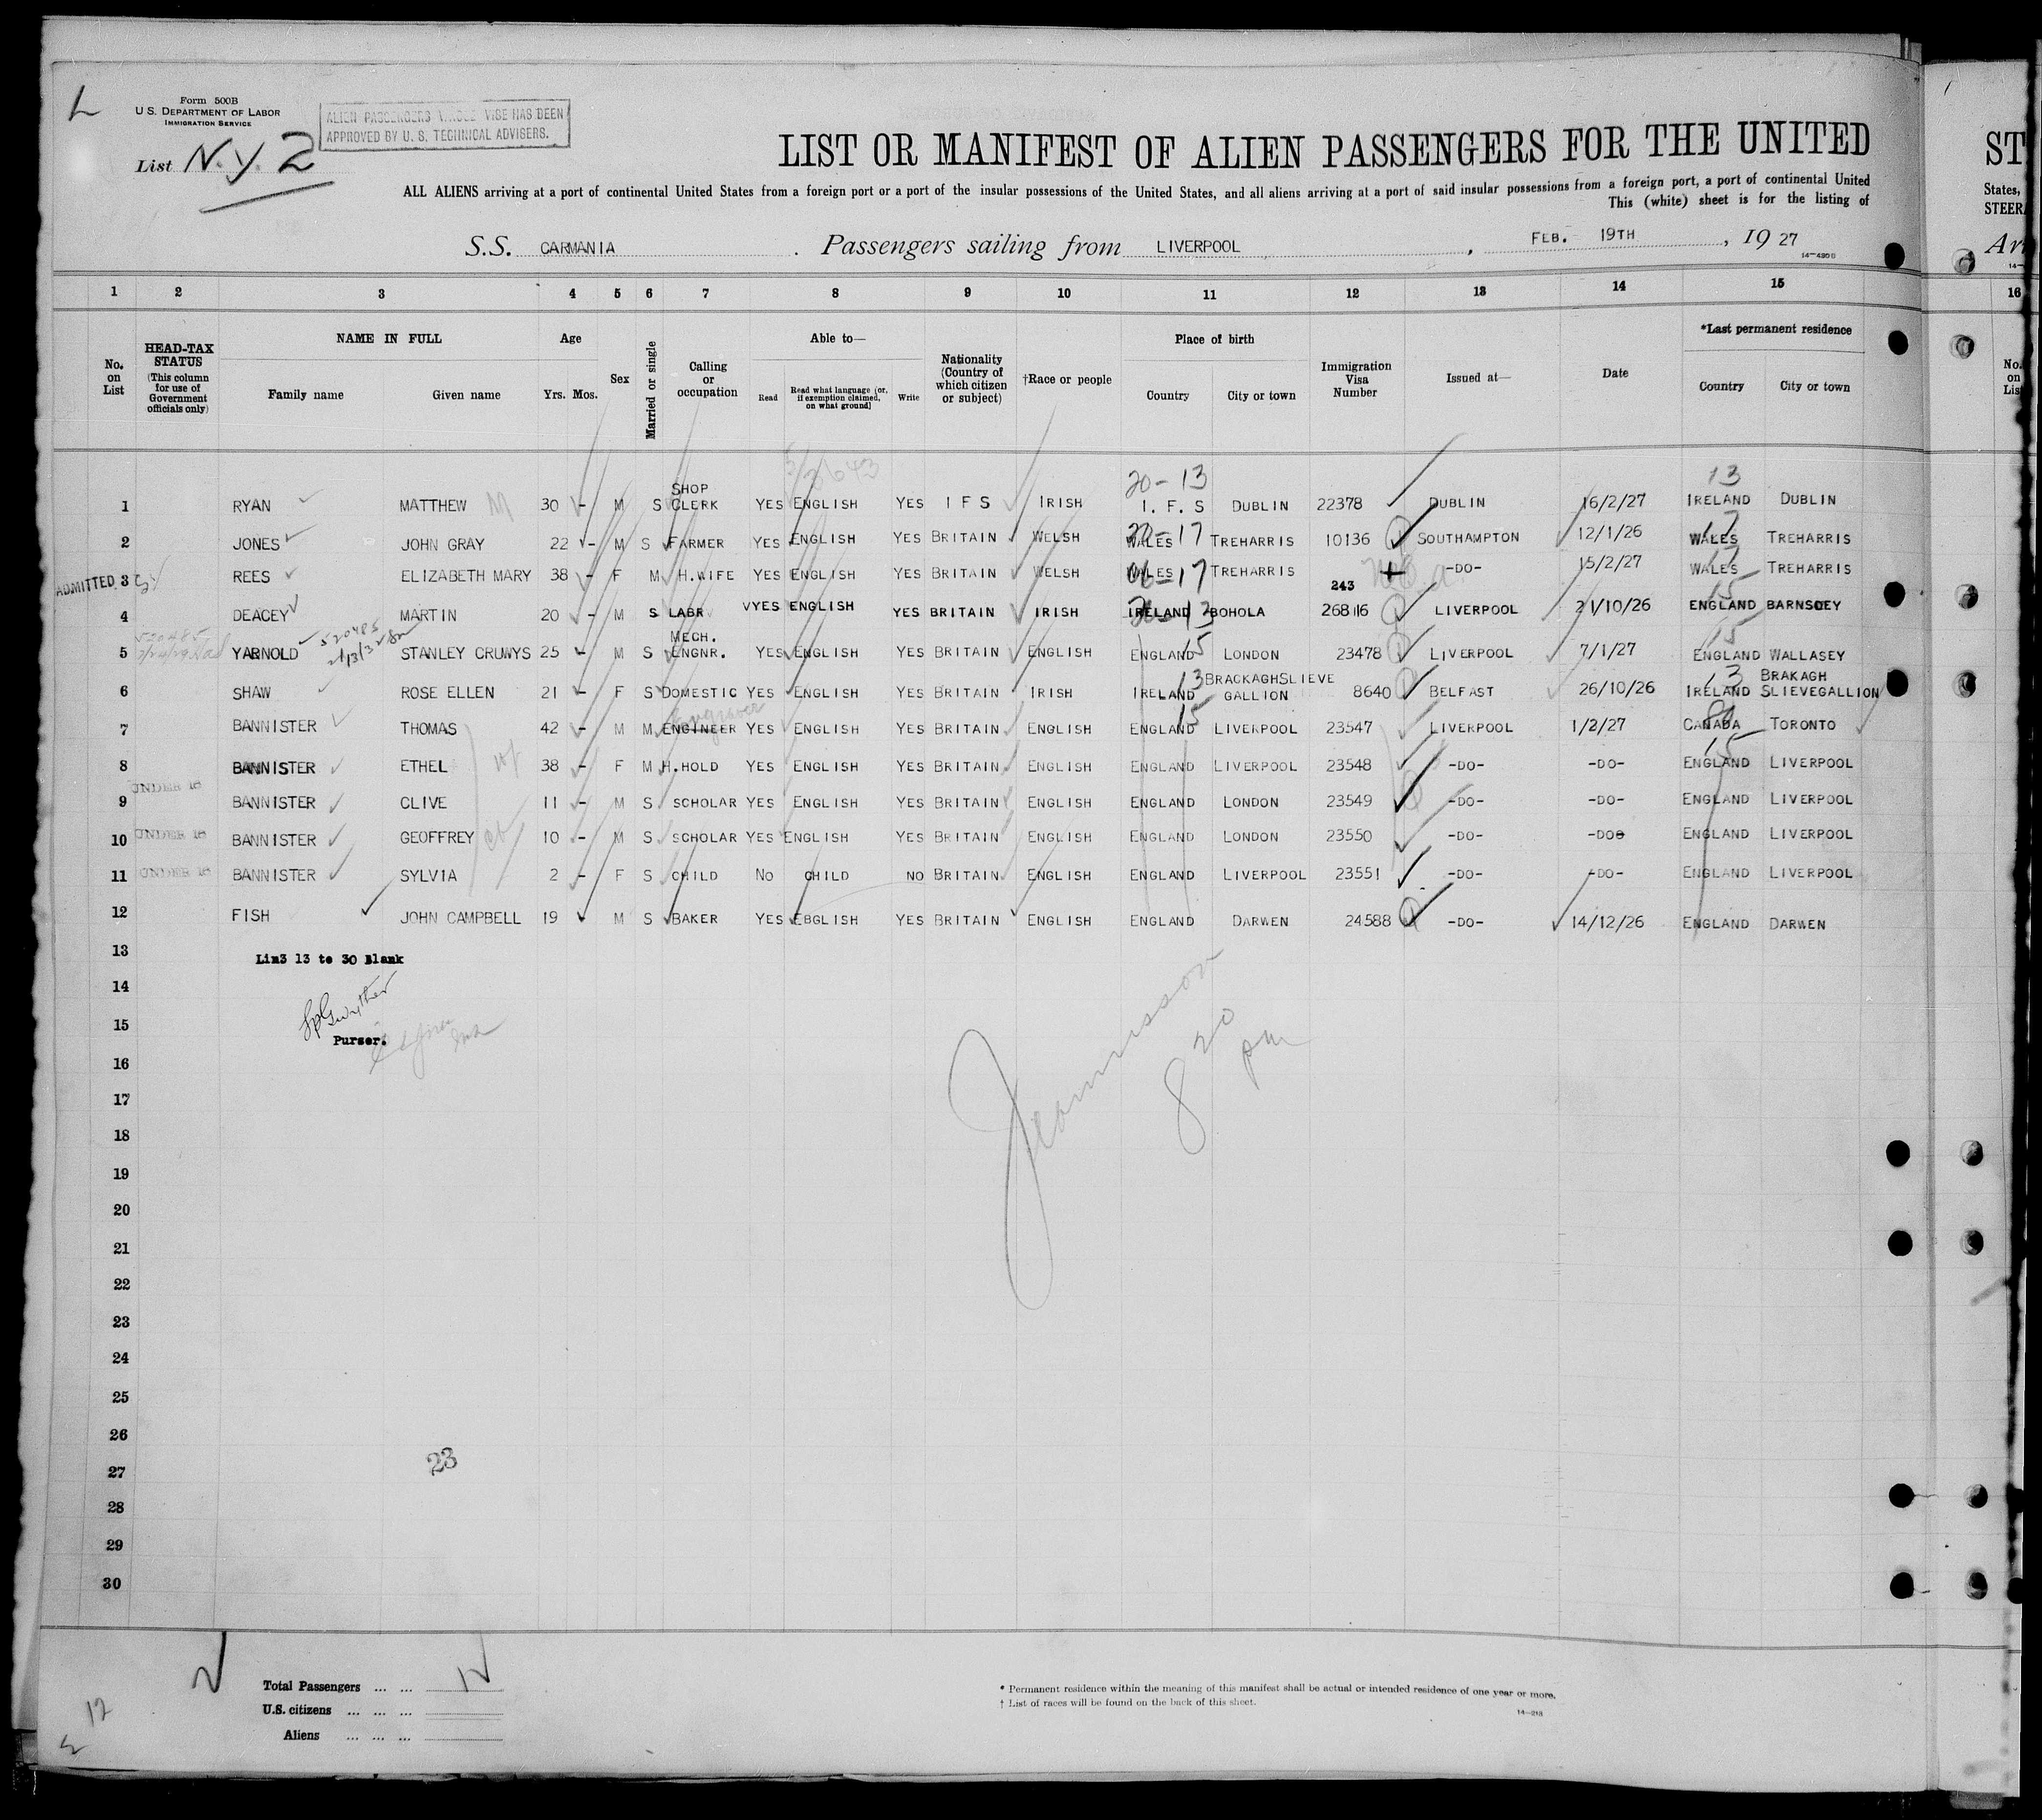 L
Form 500B
U.S. DEPARTMENT OF LABOR
IMMIGRATION SERVICE
ALIEN PASSENGERS WHOSE VISE HAS BEEN
APPROVED BY U. S. TECHNICAL ADVISERS.
List N.Y. 2
LIST OR MANIFEST OF ALIEN PASSENGERS FOR THE UNITED
ST
ALL ALIENS arriving at a port of continental United States from a foreign port or a port of the insular possessions of the United States, and all aliens arriving at a port of said insular possessions from a foreign port, a port of continental United
States,
This (white) sheet is for the listing of
STEER
S.S. CARMANIA . Passengers sailing from LIVERPOOL , FEB. 19TH , 19 27
Ar
1 2 3 4 5 6 7 8 9 10 11 12 13 14 15
16
No. on List
HEAD-TAX STATUS
(This column for use of Government officials only)
NAME IN FULL
Family name Given name
Age
Yrs. Mos.
Sex
Married or single
Calling or occupation
Able to—
Read
Read what language (or, if exemption claimed, on what ground)
Write
Nationality (Country of which citizen or subject)
†Race or people
Place of birth
Country City or town
Immigration Visa Number
Issued at—
Date
*Last permanent residence
Country City or town
No. on List
20-13 13
1 RYAN MATTHEW M 30 - M S SHOP CLERK YES ENGLISH YES I F S IRISH I. F. S DUBLIN 22378 DUBLIN 16/2/27 IRELAND DUBLIN
2 JONES JOHN GRAY 22 - M S FARMER YES ENGLISH YES BRITAIN WELSH WALES 17 TREHARRIS 10136 SOUTHAMPTON 12/1/26 WALES 17 TREHARRIS
ADMITTED 3 REES ELIZABETH MARY 38 - F M H.WIFE YES ENGLISH YES BRITAIN WELSH WALES 17 TREHARRIS 243 -DO- 15/2/27 WALES 17 TREHARRIS
4 DEACEY MARTIN 20 - M S LABR YES ENGLISH YES BRITAIN IRISH IRELAND 13 BOHOLA 26816 LIVERPOOL 21/10/26 ENGLAND 15 BARNSOEY
520485
5 YARNOLD STANLEY CRUWYS 25 - M S MECH. ENGNR. YES ENGLISH YES BRITAIN ENGLISH ENGLAND 15 LONDON 23478 LIVERPOOL 7/1/27 ENGLAND 15 WALLASEY
6 SHAW ROSE ELLEN 21 - F S DOMESTIC YES ENGLISH YES BRITAIN IRISH IRELAND 13 BRACKAGHSLIEVE GALLION 8640 BELFAST 26/10/26 IRELAND 13 BRAKAGH SLIEVEGALLION
Engraver
7 BANNISTER THOMAS 42 - M M ENGINEER YES ENGLISH YES BRITAIN ENGLISH ENGLAND 15 LIVERPOOL 23547 LIVERPOOL 1/2/27 CANADA TORONTO
8 BANNISTER ETHEL 38 - F M H.HOLD YES ENGLISH YES BRITAIN ENGLISH ENGLAND LIVERPOOL 23548 -DO- -DO- ENGLAND 15 LIVERPOOL
UNDER 16
9 BANNISTER CLIVE 11 - M S SCHOLAR YES ENGLISH YES BRITAIN ENGLISH ENGLAND LONDON 23549 -DO- -DO- ENGLAND LIVERPOOL
10 UNDER 16 BANNISTER GEOFFREY 10 - M S SCHOLAR YES ENGLISH YES BRITAIN ENGLISH ENGLAND LONDON 23550 -DO- -DO- ENGLAND LIVERPOOL
11 UNDER 16 BANNISTER SYLVIA 2 - F S CHILD NO CHILD NO BRITAIN ENGLISH ENGLAND LIVERPOOL 23551 -DO- -DO- ENGLAND LIVERPOOL
12 FISH JOHN CAMPBELL 19 M S BAKER YES EBGLISH YES BRITAIN ENGLISH ENGLAND DARWEN 24588 -DO- 14/12/26 ENGLAND DARWEN
13 Lin3 13 to 30 Blank
14
15
Purser.
16
17
18
8 20 pm
19
20
21
22
23
24
25
26
23
27
28
29
30
Total Passengers ... ... 12
U.S. citizens ... ... ...
Aliens ... ... ...
12
* Permanent residence within the meaning of this manifest shall be actual or intended residence of one year or more.
† List of races will be found on the back of this sheet.
14—213